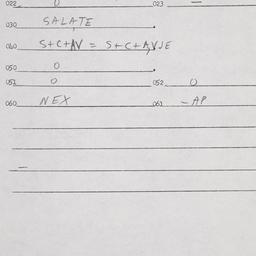 022 0 023 —
030 SALATE
040 S+C+AV = S+C+A,VJE
050 0
051 0 052 0
060 NEX 061 - AP